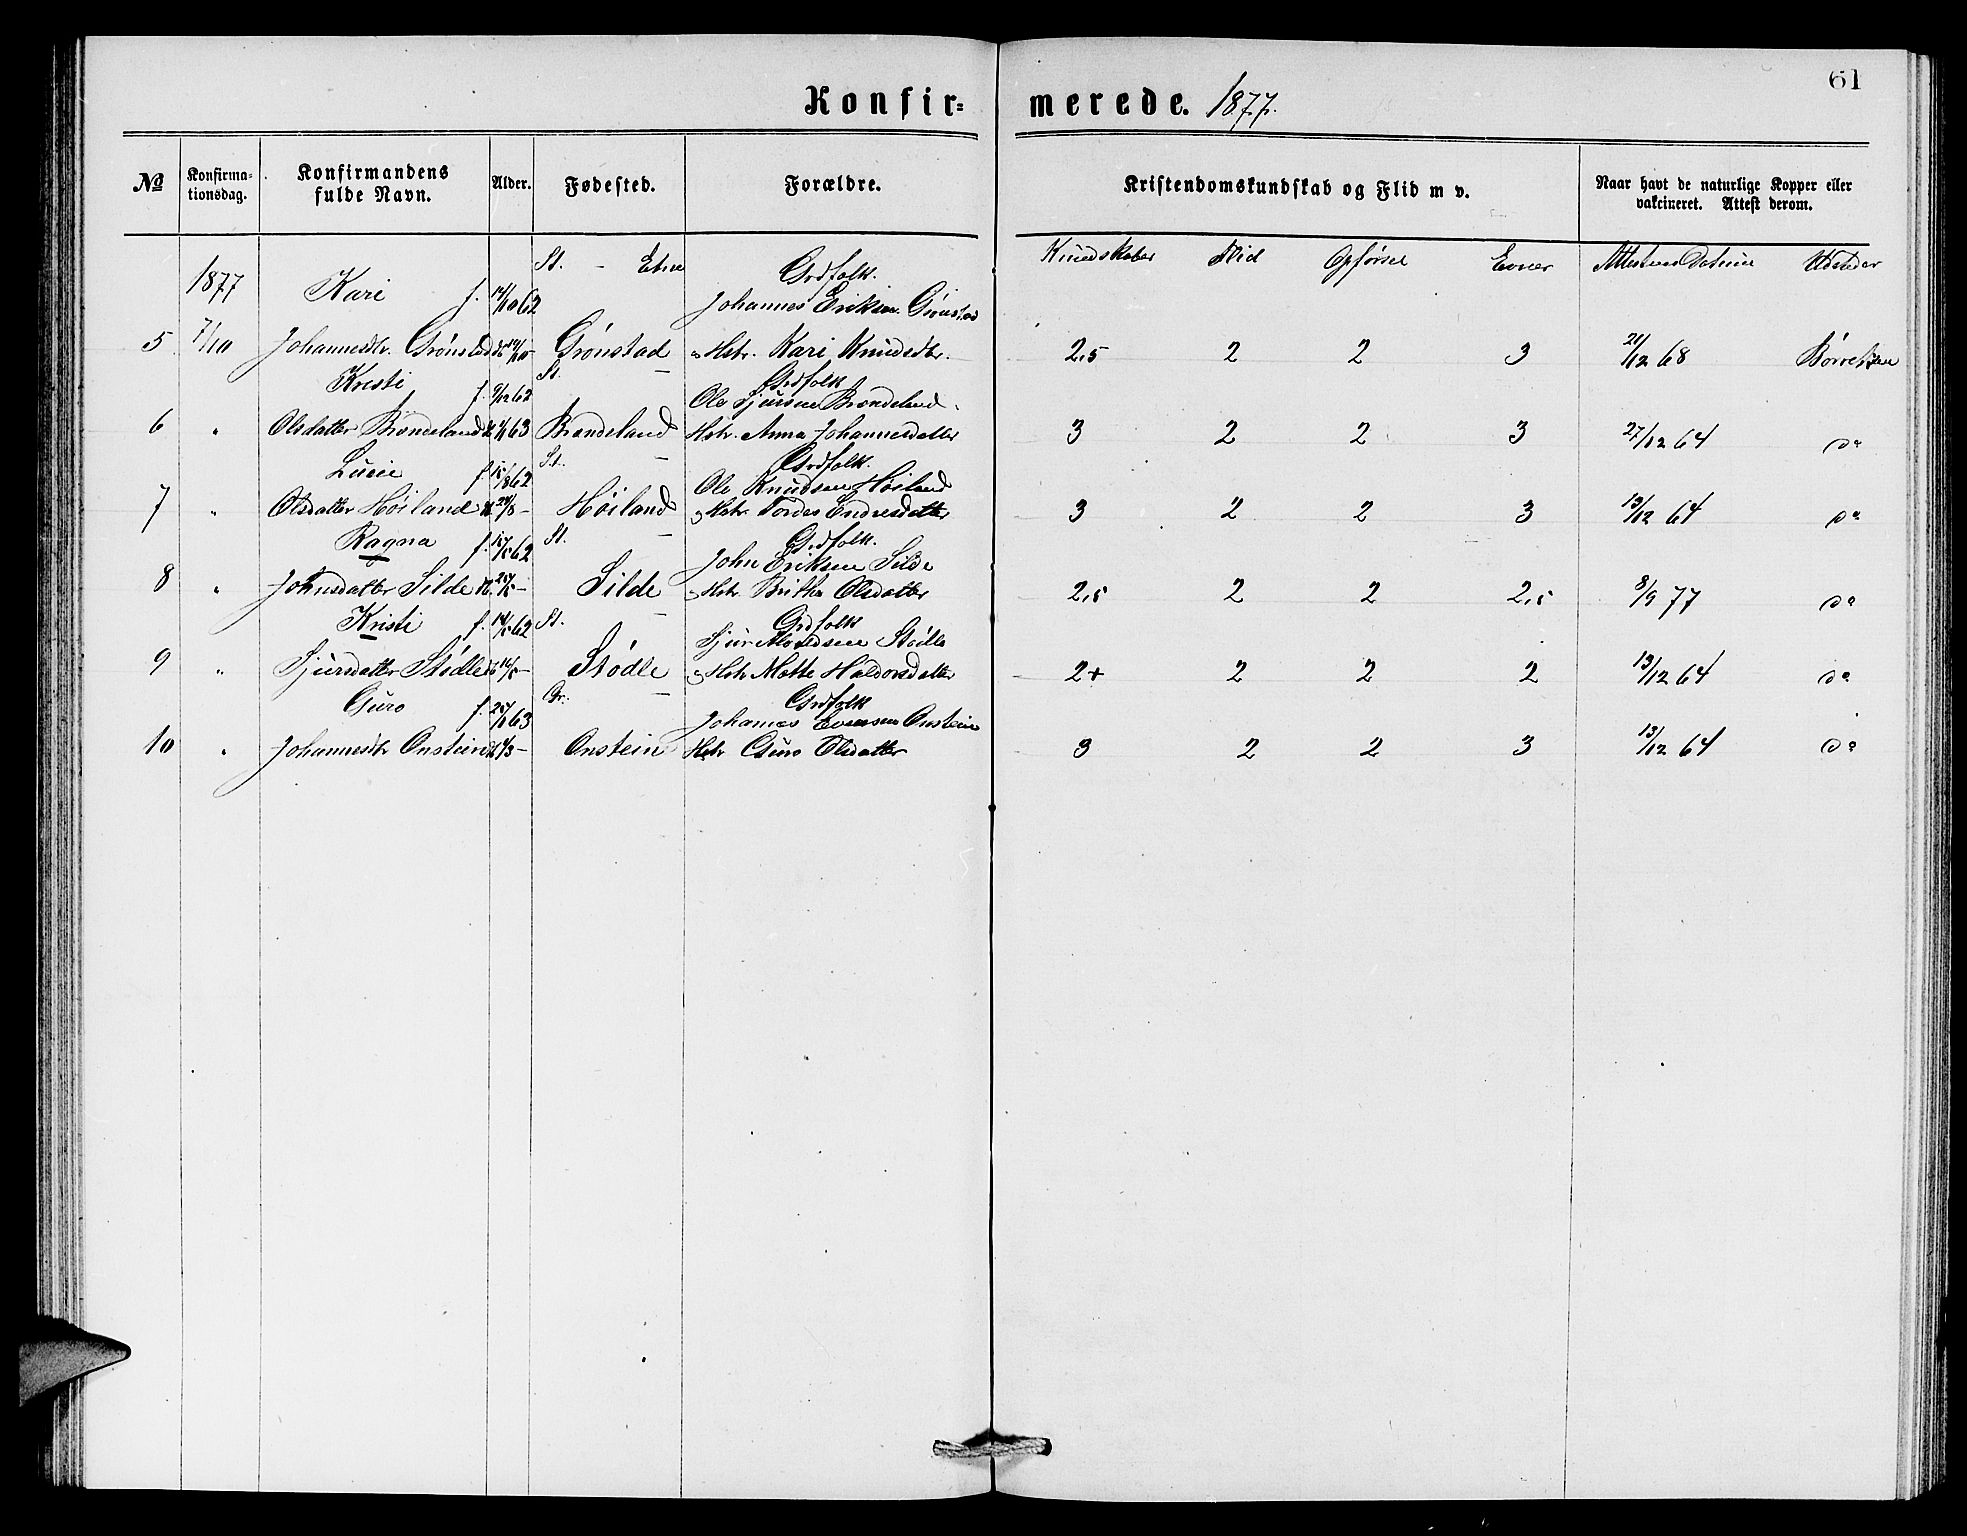 61
Konfir= merede. 1877.
No Konfirma-tionsdag. Konfirmandens fulde Navn. Alder. Fødested. Forældre. Kristendomskundskab og Flid m v. Naar havt de naturlige Kopper eller vakcineret. Attest derom.
St. - Etne Grdfolk. Kundskaber Flid Opførsel Evner Attestens Datum Udsteder
1877 Kari f. 14/10 62 Johannes Eriksen Grönstad
5 7/10 Johannesdtr. Grönstad Grönstad Hstr. Kari Knudsdtr. 2,5 2 2 3 21/12 68 Börretzen
Kristi f. 9/12 62 St. - Grdfolk
Ole Sjursen Brændeland
6 " Olsdatter Brændeland 1/1 63 Brændeland Hstr. Anna Johannesdatter 3 2 2 3 27/12 64 do
Lucie f. 15/8 62 St. - Grdfolk.
Ole Knudsen Höiland
7 " Olsdatter Höiland 24/8 - Höiland Hstr. Tordes Endresdatter 3 2 2 3 13/12 64 do
Ragna f. 62 St. - Grdfolk.
John Eriksen Silde
8 " Johnsdatter Silde 25/5 - Silde Hstr. Britha Olsdatter 2,5 2 2 2,5 8/9 77 do
Kristi f. 14/5 62 St. - Grdfolk
Sjur Stödle
9 " Sjursdatter Stödle - Stödle Hstr Mette Haldorsdatter 2+ 2 2 2 13/12 64 do
Guro f. 63 Gr. - Grdfolk
Johannes Evensen Onstein
10 " Johannesdtr Onstein - Onstein Hstr Guro Olsdatter 3 2 2 3 13/12 64 do